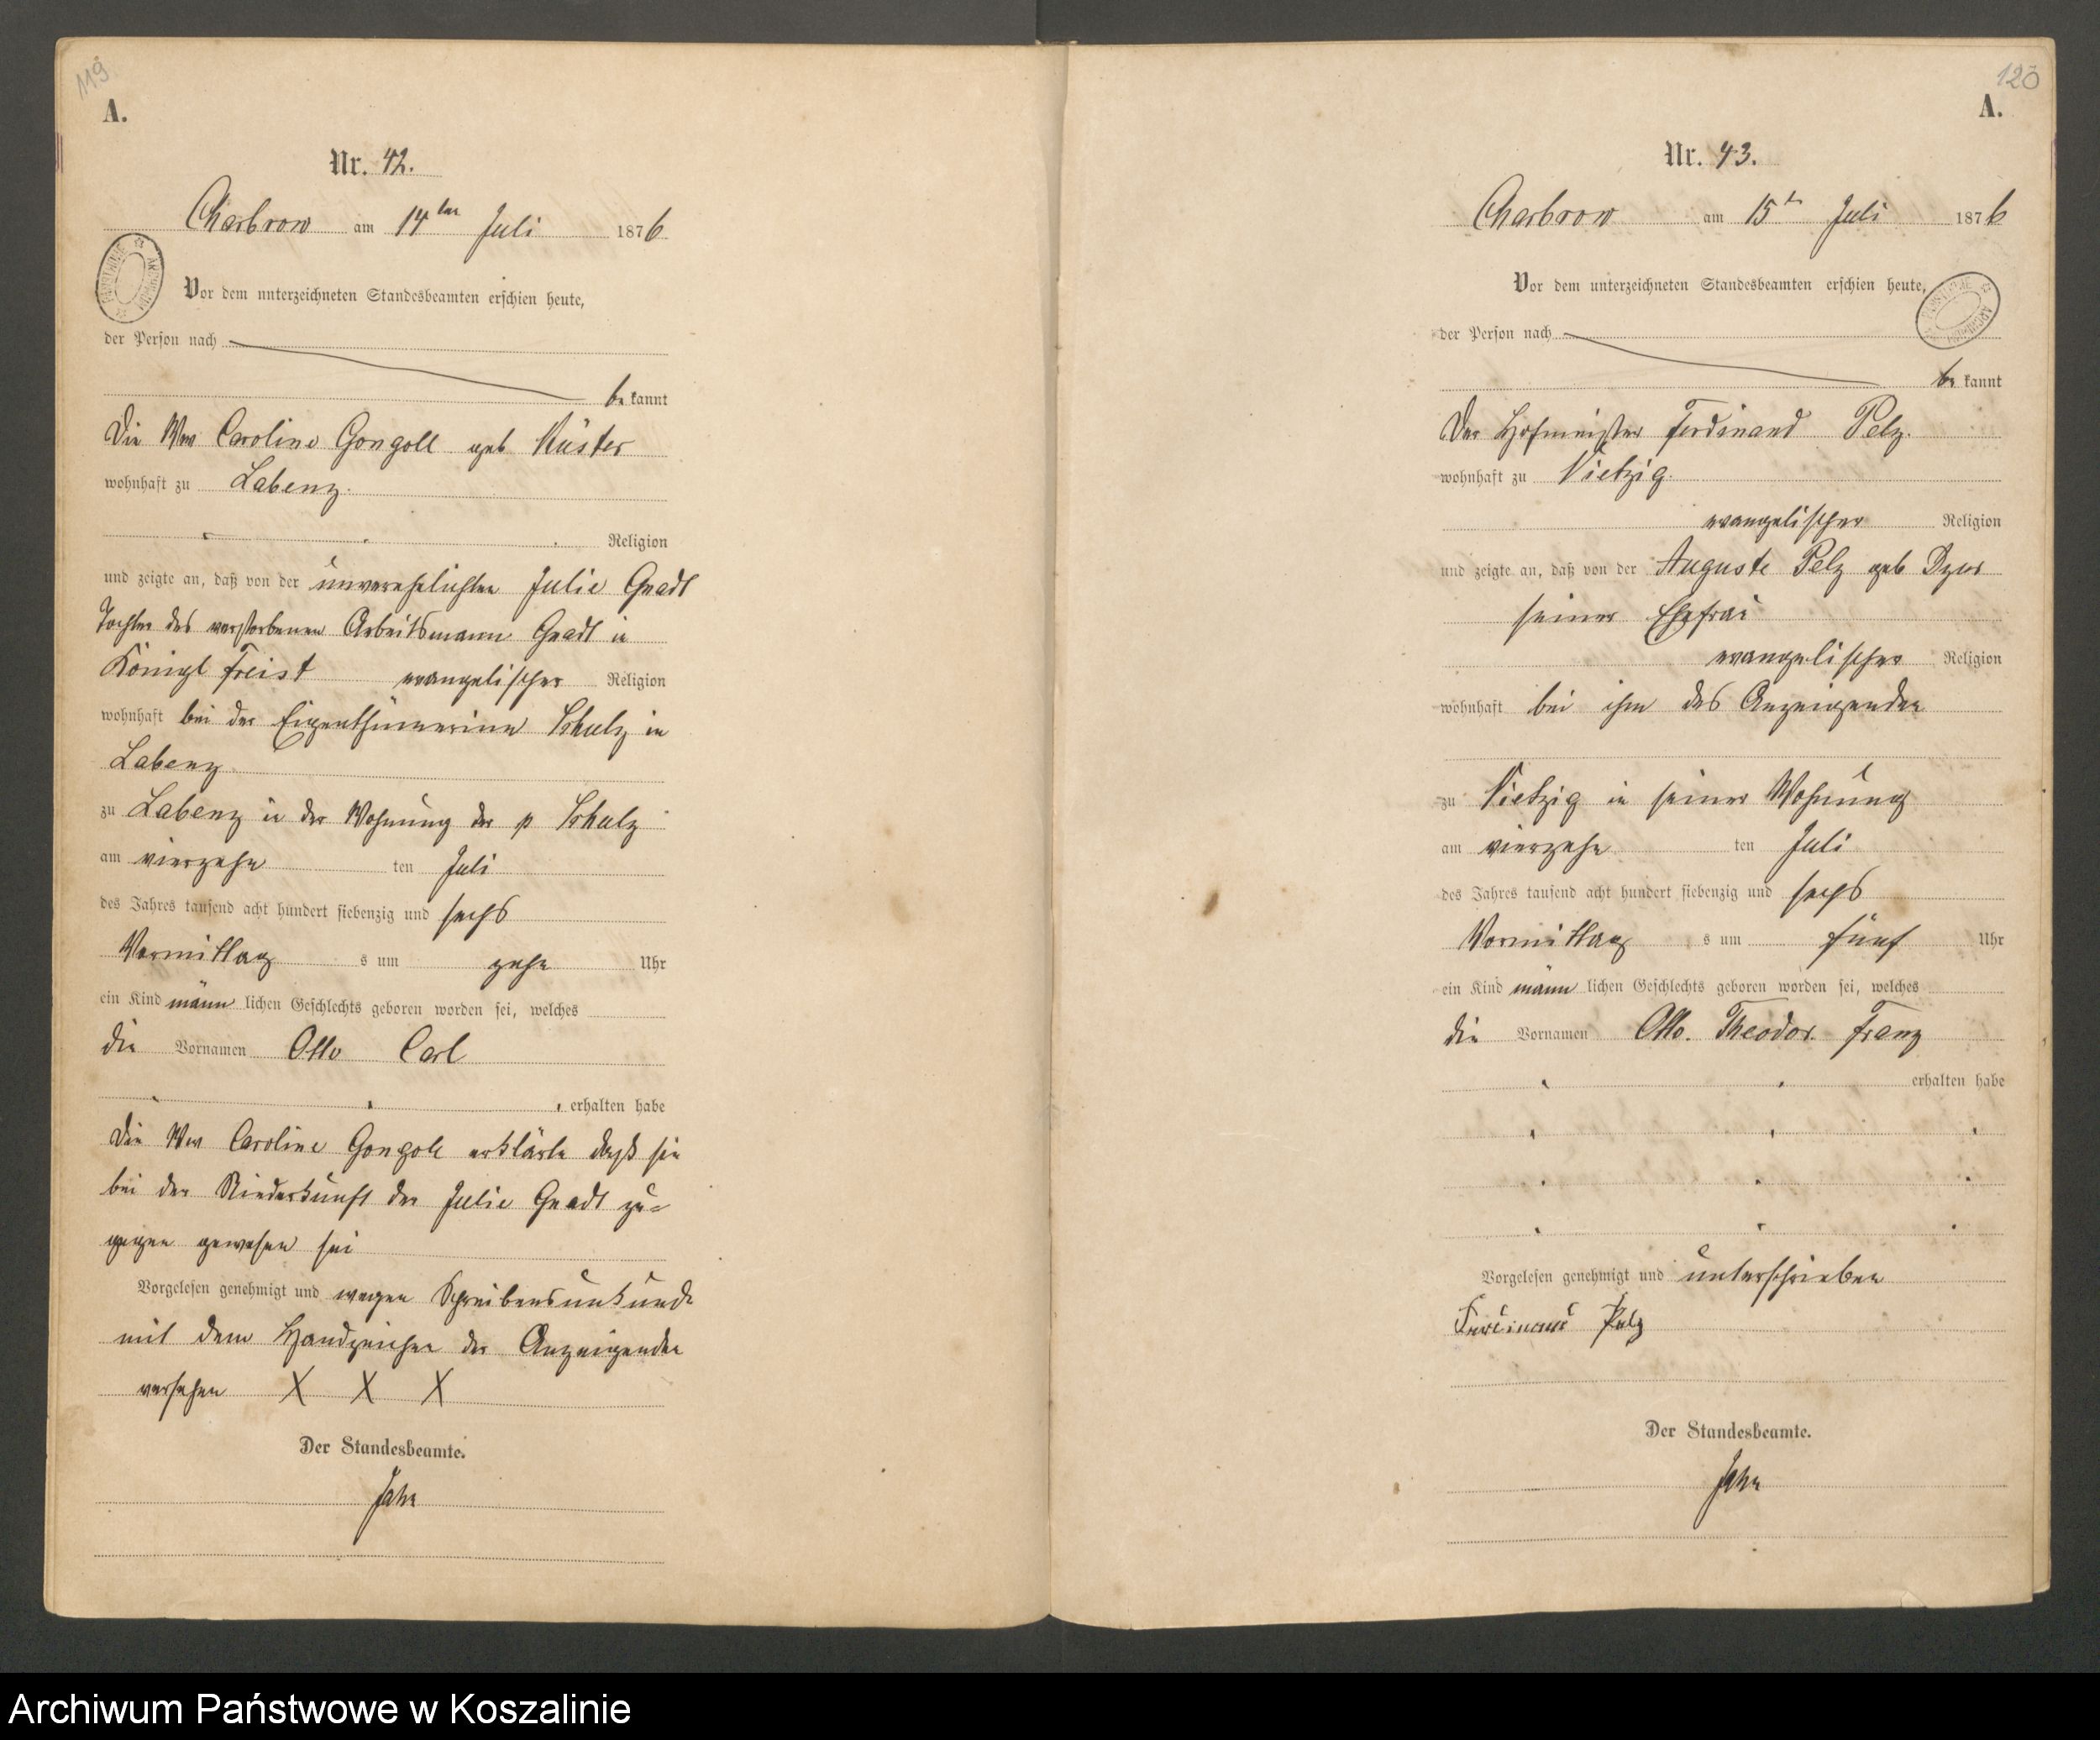 119
A.
Nr. 42.
Charbrow am 14ten Juli 1876
Vor dem unterzeichneten Standesbeamten erschien heute,
der Person nach
bekannt
Die Ww Caroline Gongoll geb Küster
wohnhaft zu Labenz.
Religion
und zeigte an, daß von der unverehelichten Julie Gnadt
Tochter des verstorbenen Arbeitsmann Gnadt in
Königl Freist evangelischer Religion
wohnhaft bei der Eigenthümerinn Schulz in
Labenz
zu Labenz in der Wohnung der p Schulz
am vierzehn ten Juli
des Jahres tausend acht hundert siebenzig und sechs
Vormittag s um zehn Uhr
ein Kind männ lichen Geschlechts geboren worden sei, welches
die Vornamen Otto Carl
erhalten habe
Die Ww Caroline Gongoll erklärte daß sie
bei der Niederkunft der Julie Gnadt zu=
gegen gewesen sei
Vorgelesen genehmigt und wegen Schreibensunkunde
mit dem Handzeichen der Anzeigenden
versehen X X X
Der Standesbeamte.
120
A.
Nr. 43.
Charbrow am 15t Juli 1876
Vor dem unterzeichneten Standesbeamten erschien heute,
der Person nach
bekannt
Der Hofmeister Ferdinand Pelz.
wohnhaft zu Vietzig.
evangelischer Religion
und zeigte an, daß von der Auguste Pelz geb
seiner Ehefrau
evangelischer Religion
wohnhaft bei ihm des Anzeigenden
zu Vietzig in seiner Wohnung
am vierzehn ten Juli
des Jahres tausend acht hundert siebenzig und sechs
Vormittag s um fünf Uhr
ein Kind männ lichen Geschlechts geboren worden sei, welches
die Vornamen Otto. Theodor. Franz
erhalten habe
Vorgelesen genehmigt und unterschrieben
Ferdinand Pelz
Der Standesbeamte.
Archiwum Państwowe w Koszalinie